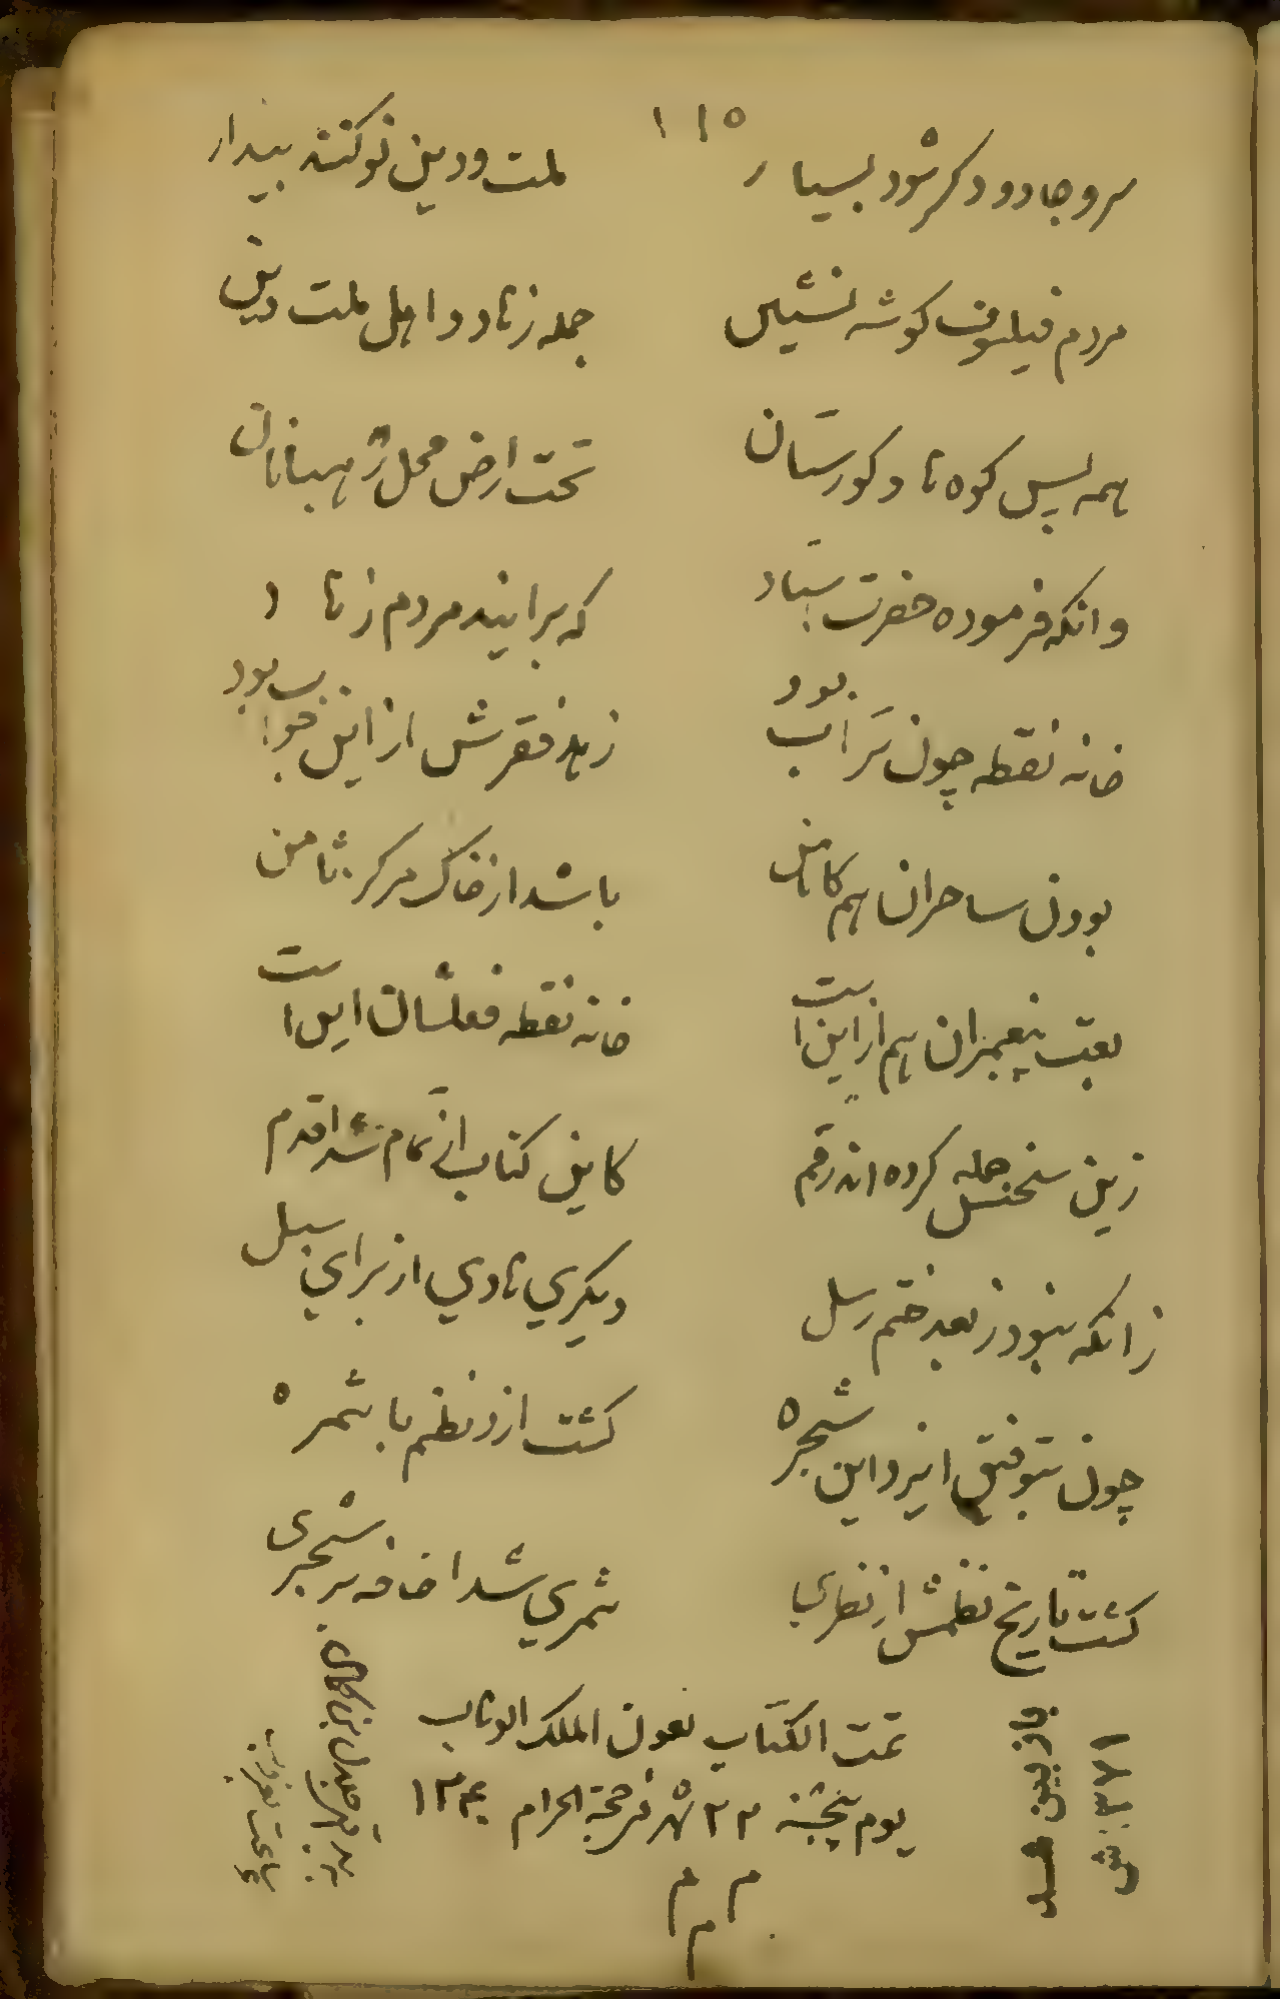 ۱۱۵
سر و جادو دکر شود بسیار
ملت و دین نو کنند بیدار
مردم فیلسوف کوشه نشین
جمله زهاد و اهل ملت دین
همه پس کوه ها و کورستان
تحت ارض محل رهبانان
وانکه فرموده حضرت استاد
که برایند مردم زهاد
خانه نقطه چون تراب بود
زهد فقرش از این خراب بود
بودن ساحران هم کاهن
باشد از خاک مرکز ثامن
بعثت پیغمبران هم از این است
خانه نقطه فعلشان این است
زین سخن جمله کرده اند رقم
کاین کتاب تمام شد اقدم
زانکه نبود ز بعد ختم رسل
دیکری هادی از برای سبل
چون بتوفیق ایزد این شجره
کشت از نظم با ثمره
کشت تاریخ نظمش از نظری
ثمری شد اضافه بر شجری
تمت الکتاب بعون الملک الوهاب
یوم پنجشنبه ۲۲ شهر ذیحجة الحرام
باز بین شد
۱۳۷۱ ش